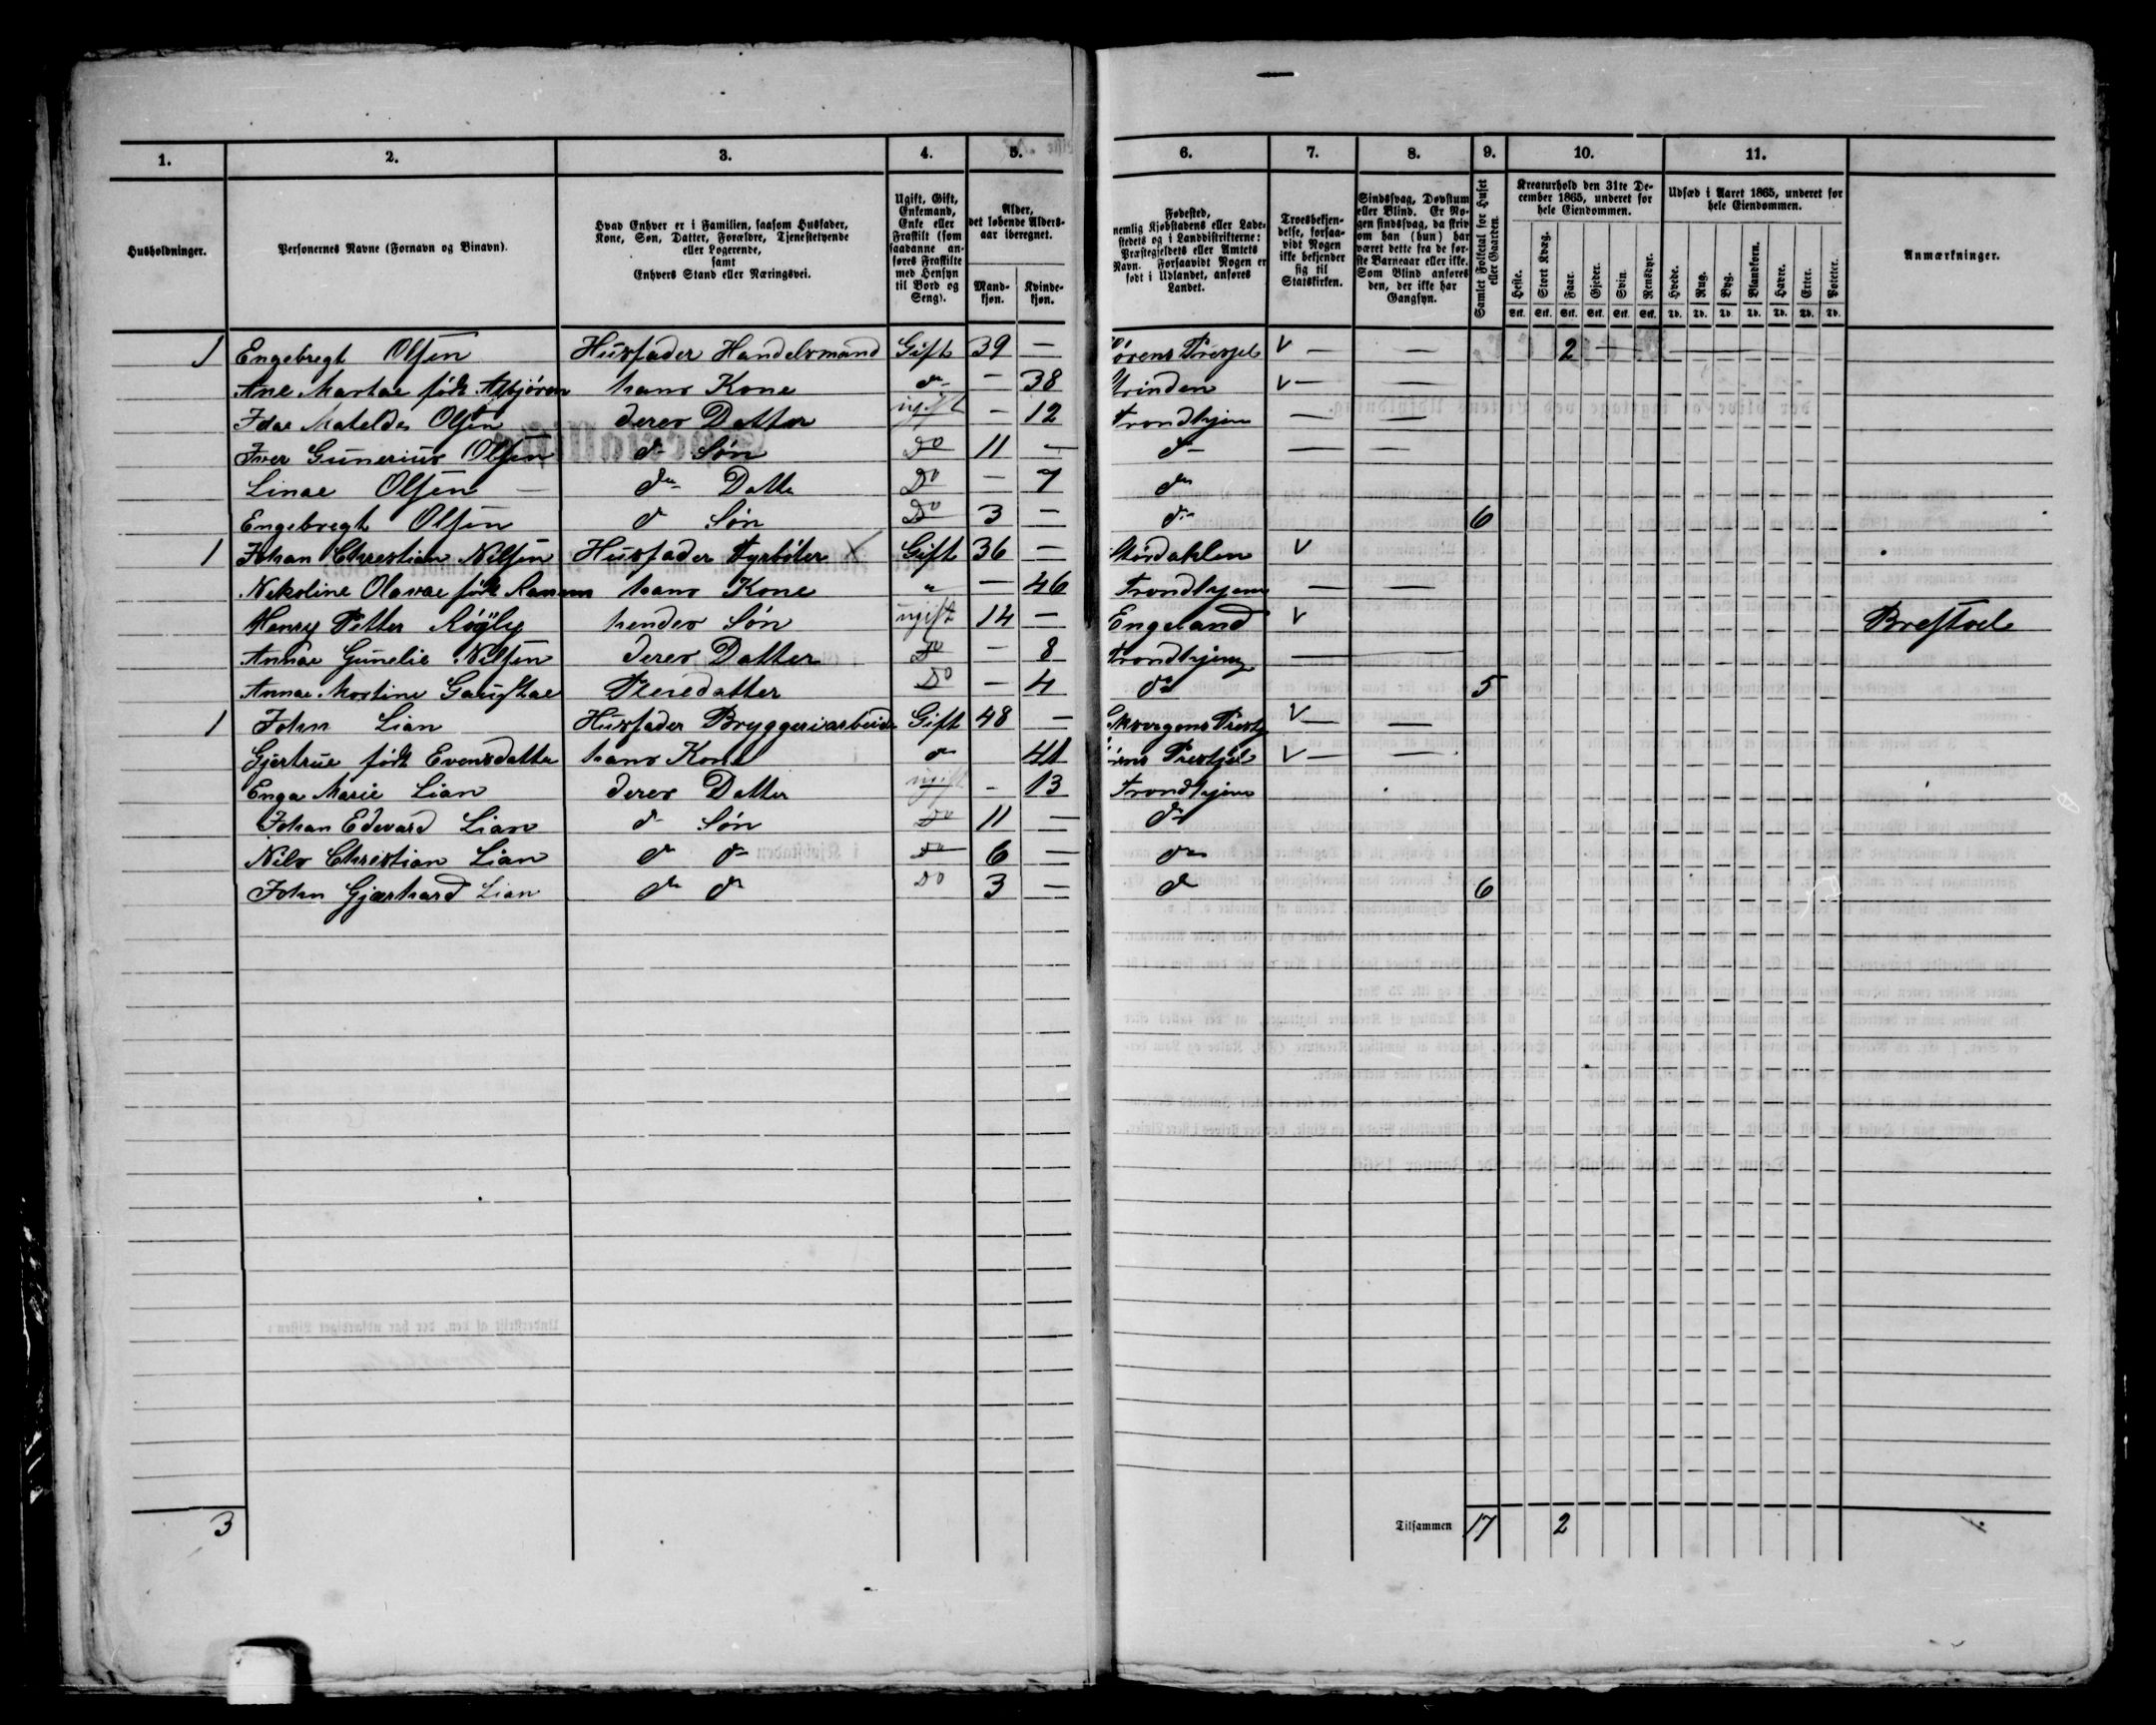 1. 2. 3. 4. 5. 6. 7. 8. 9. 10. 11.
Husholdninger.
Personernes Navne (Fornavn og Binavn).
Hvad Enhver er i Familien, saasom Husfader, Kone, Søn, Datter, Forældre, Tjenestetyende eller Logerende, samt Enhvers Stand eller Næringsvei.
Ugift, Gift, Enkemand, Enke eller Fraskilt (som saadanne anføres Fraskilte med Hensyn til Bord og Seng).
Alder, det løbende Aldersaar iberegnet.
Mandkjøn. Kvindekjøn.
Fødested, nemlig Kjøbstadens eller Ladestedets og i Landdistrikterne: Præstegjeldets eller Amtets Navn. Forsaavidt Nogen er født i Udlandet, anføres Landet.
Troesbekjendelse, forsaavidt Nogen ikke bekjender sig til Statskirken.
Sindssvag, Døvstum eller Blind. Er Nogen sindssvag, da skriv om han (hun) har været dette fra de første Barneaar eller ikke. Som Blind anføres den, der ikke har Gangsyn.
Samlet Folketal for Huset eller Gaarden.
Kreaturhold den 31te December 1865, underet for hele Eiendommen.
Heste. Stort Kvæg. Faar. Gjeder. Svin. Rensdyr.
Stk. Stk. Stk. Stk. Stk. Stk.
Udsæd i Aaret 1865, underet for hele Eiendommen.
Hvede. Rug. Byg. Blandkorn. Havre. Erter. Poteter.
Td. Td. Td. Td. Td. Td. Td.
Anmærkninger.
1 Engebregt Olsen Husfader Handelsmand Gift 39 — ørens Prestjel v — — 2 —
Ane Martae født Asbjøren hans Kone do — 38 Strinden v — —
Idae Matelde Olsen deres Datter ugift — 12 Trondhjem — —
Iver Gunerius Olsen do Søn Do 11 — do — —
Linae Olsen — do Datte Do — 7 do
Engebregt Olsen do Søn Do 3 — do 6
1 Johan Chrestian Nilsen Husfader Fyrbøter X Gift 36 — Størdahlen v
Nekoline Olavae født Ranum hans Kone " — 46 Trondhjem — —
Henry Petter hendes Søn ugift 14 — Engeland v Brestvel
Annae Gunelie Nilsen deres Datter Do — 8 Trondhjem — —
Annae Mostine Pleiedatter Do — 4 do 5
1 John Lian Husfader Bryggeriarbeide Gift 48 — Prestj v — —
Gjertrue født Evensdatter hans Kone do 41 Prestjel v — —
Enga Marie Lian deres Datter ugift - 13 Trondhjem
Johan Edevard Lian do Søn Do 11 — do
Nils Chrestian Lian do do Do 6 — do
John Gjærhard Lian do do Do 3 — do 6
3 Tilsammen 17 2